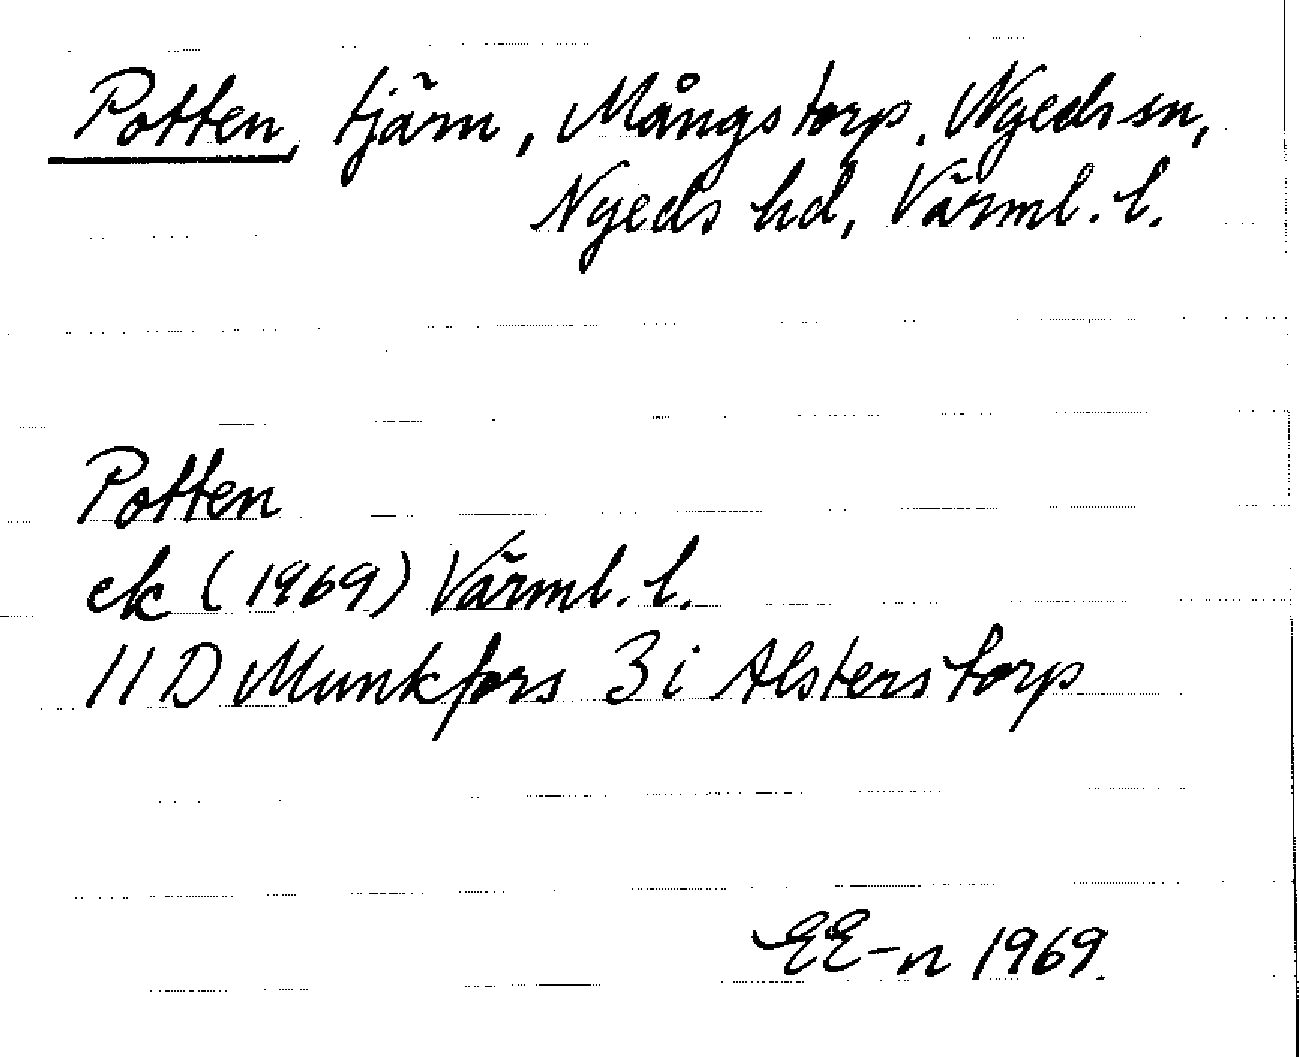 Potten, tjärn, Mångstorp, Nyeds sn,
Nyeds hd, Värml. l.
Potten
ek (1969) Värml. l.
11 D Munkfors 3 i Alsterstorp
EE-n 1969.